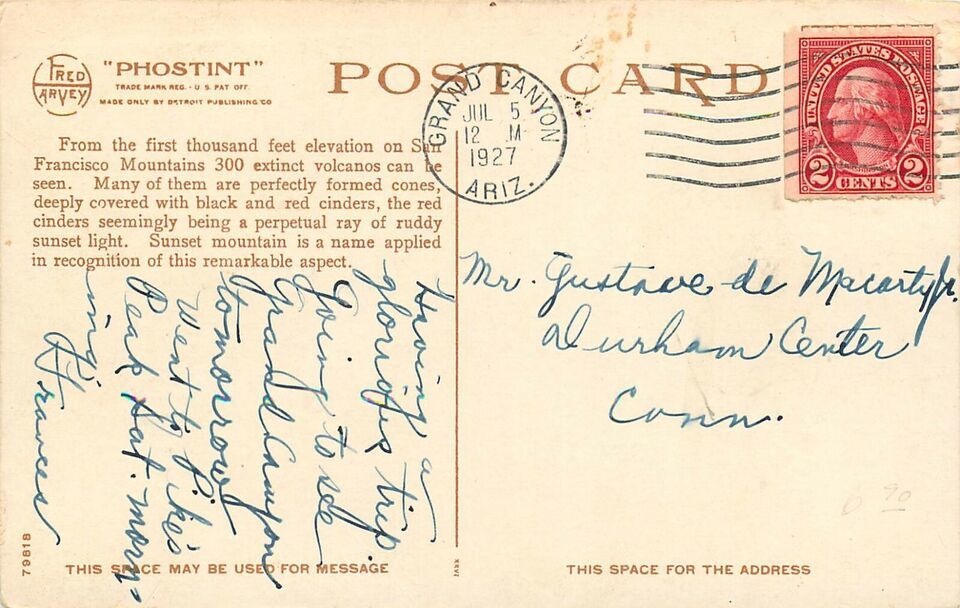 FRED
HARVEY
"PHOSTINT"
TRADE MARK REG. - U.S. PAT OFF.
MADE ONLY BY DETROIT PUBLISHING CO
POST CARD
GRAND CANYON
JUL 5
12 M
1927
ARIZ.
UNITED STATES POSTAGE
2 CENTS 2
From the first thousand feet elevation on San
Francisco Mountains 300 extinct volcanos can be
seen. Many of them are perfectly formed cones,
deeply covered with black and red cinders, the red
cinders seemingly being a perpetual ray of ruddy
sunset light. Sunset mountain is a name applied
in recognition of this remarkable aspect.
Having a
glorious trip
Going to see
Grand Canyon
tomorrow
Went to Pike's
Peak Sat. morn-
ing.
Frances
Mr. Gustave de Macarty Jr.
Durham Center
Conn.
79818
THIS SPACE MAY BE USED FOR MESSAGE
THIS SPACE FOR THE ADDRESS
90